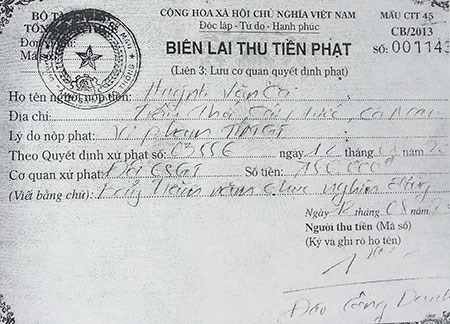 BỘ TÀ
CỘNG HÒA XÃ HỘI CHỦ NGHĨA VIỆT NAM
MẪU CTT 45
TỔN
Độc lập - Tự do - Hạnh phúc
CB/2013
Đơn
BIÊN LAI THU TIỀN PHẠT
SỐ: 001143
Mã số
(Liên 3: Lưu cơ quan quyết định phạt)
Họ tên người nộp tiền: Huỳnh Văn
Địa chỉ: Cà Mau
Lý do nộp phạt: Vi phạm TTATGT
Theo Quyết định xử phạt số: ngày 12 tháng năm 20
Cơ quan xử phạt: Đội CSGT Số tiền:
(Viết bằng chữ): Bảy Trăm năm chục nghìn đồng
Ngày 12 tháng 05 năm
Người thu tiền (Mã số)
(Ký và ghi rõ họ tên)
Đào Công Danh